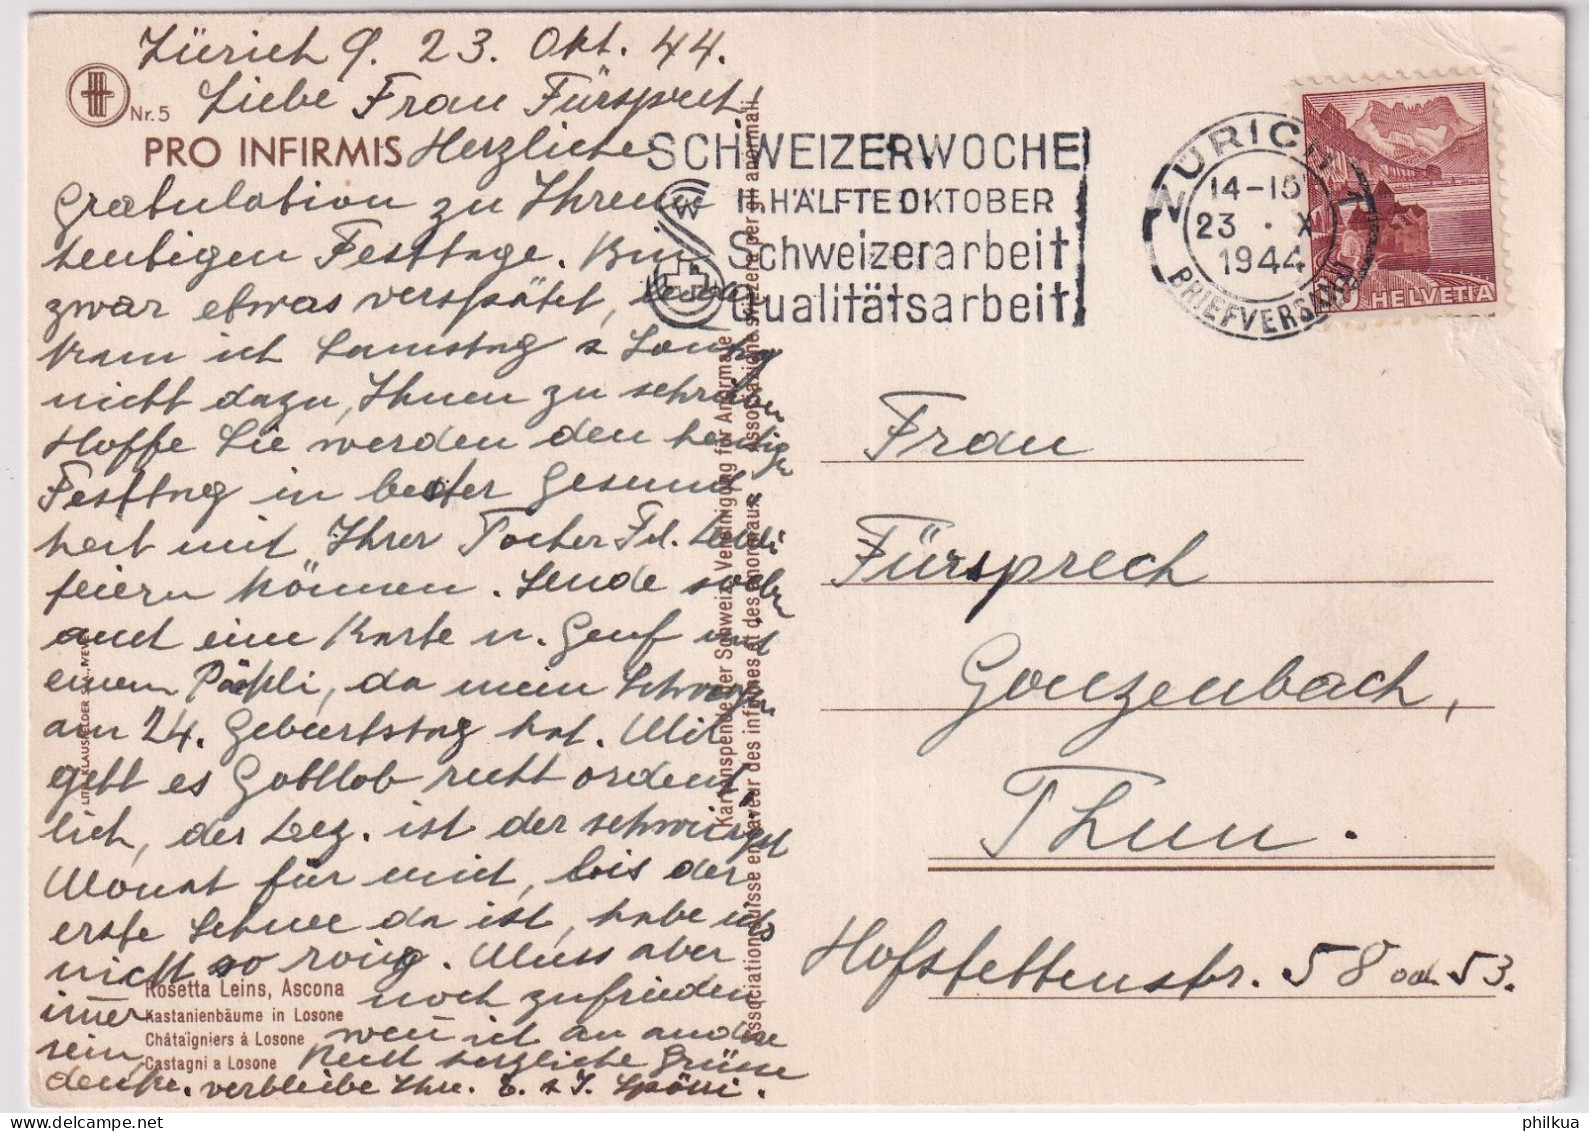 Zürich 9. 23. Okt. 44.
Nr. 5
Liebe Frau Fürsprech!
PRO INFIRMIS
Herzliche
Gratulation zu Ihrem
heutigen Festtage. Bin
zwar etwas verspätet,
kam ich Samstag & Sonntag
nicht dazu, Ihnen zu schreiben
Hoffe Sie werden den heutigen
Festtag in bester Gesund
heit mit Ihrer Tochter Frl.
feiern können. Sende soeben
auch eine Karte n. Genf und
einem Päckli, da mein Schwager
am 24. Geburtstag hat. Mir
geht es Gottlob recht ordent,
lich, der Dez. ist der schwierigst
Monat für mich, bis der
erste Schnee da ist, habe ich
nicht so ruhig. Muss aber
immer noch zufrieden
sein, wenn ich an andere
denke. Recht herzliche Grüsse
verbleibe Ihr. E. & J.
Rosetta Leins, Ascona
Kastanienbäume in Losone
Châtaîgniers à Losone
Castagni a Losone
Kartenspende der Schweiz. Vereinigung für Anormale
Association suisse en faveur des infirmes et des anormaux
Associazione svizzera per gli anormali
SCHWEIZERWOCHE
II HÄLFTE OKTOBER
Schweizerarbeit
Qualitätsarbeit
ZÜRICH 1
14-15
23 · X
1944
BRIEFVERSAND
10 HELVETIA
Frau
Fürsprech
Gonzenbach,
Thun.
Hofstettenstr. 58 od. 53.
philkua